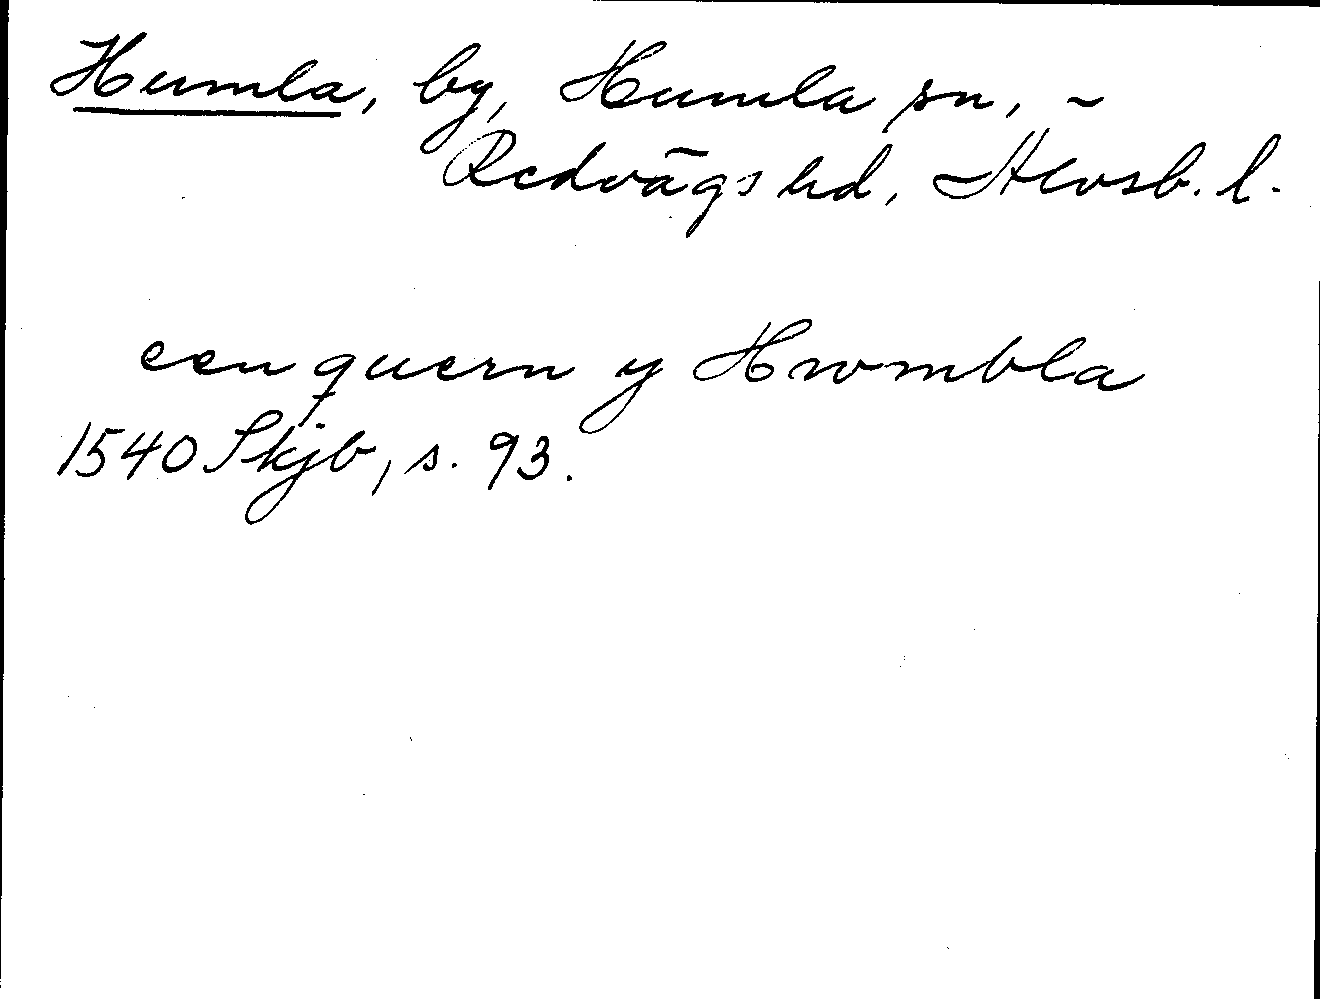 Humla, by, Humla sn, ~
Redvägs hd, Älvsb. l.
een quern y Hwmbla
1540 Skjb, s. 93.